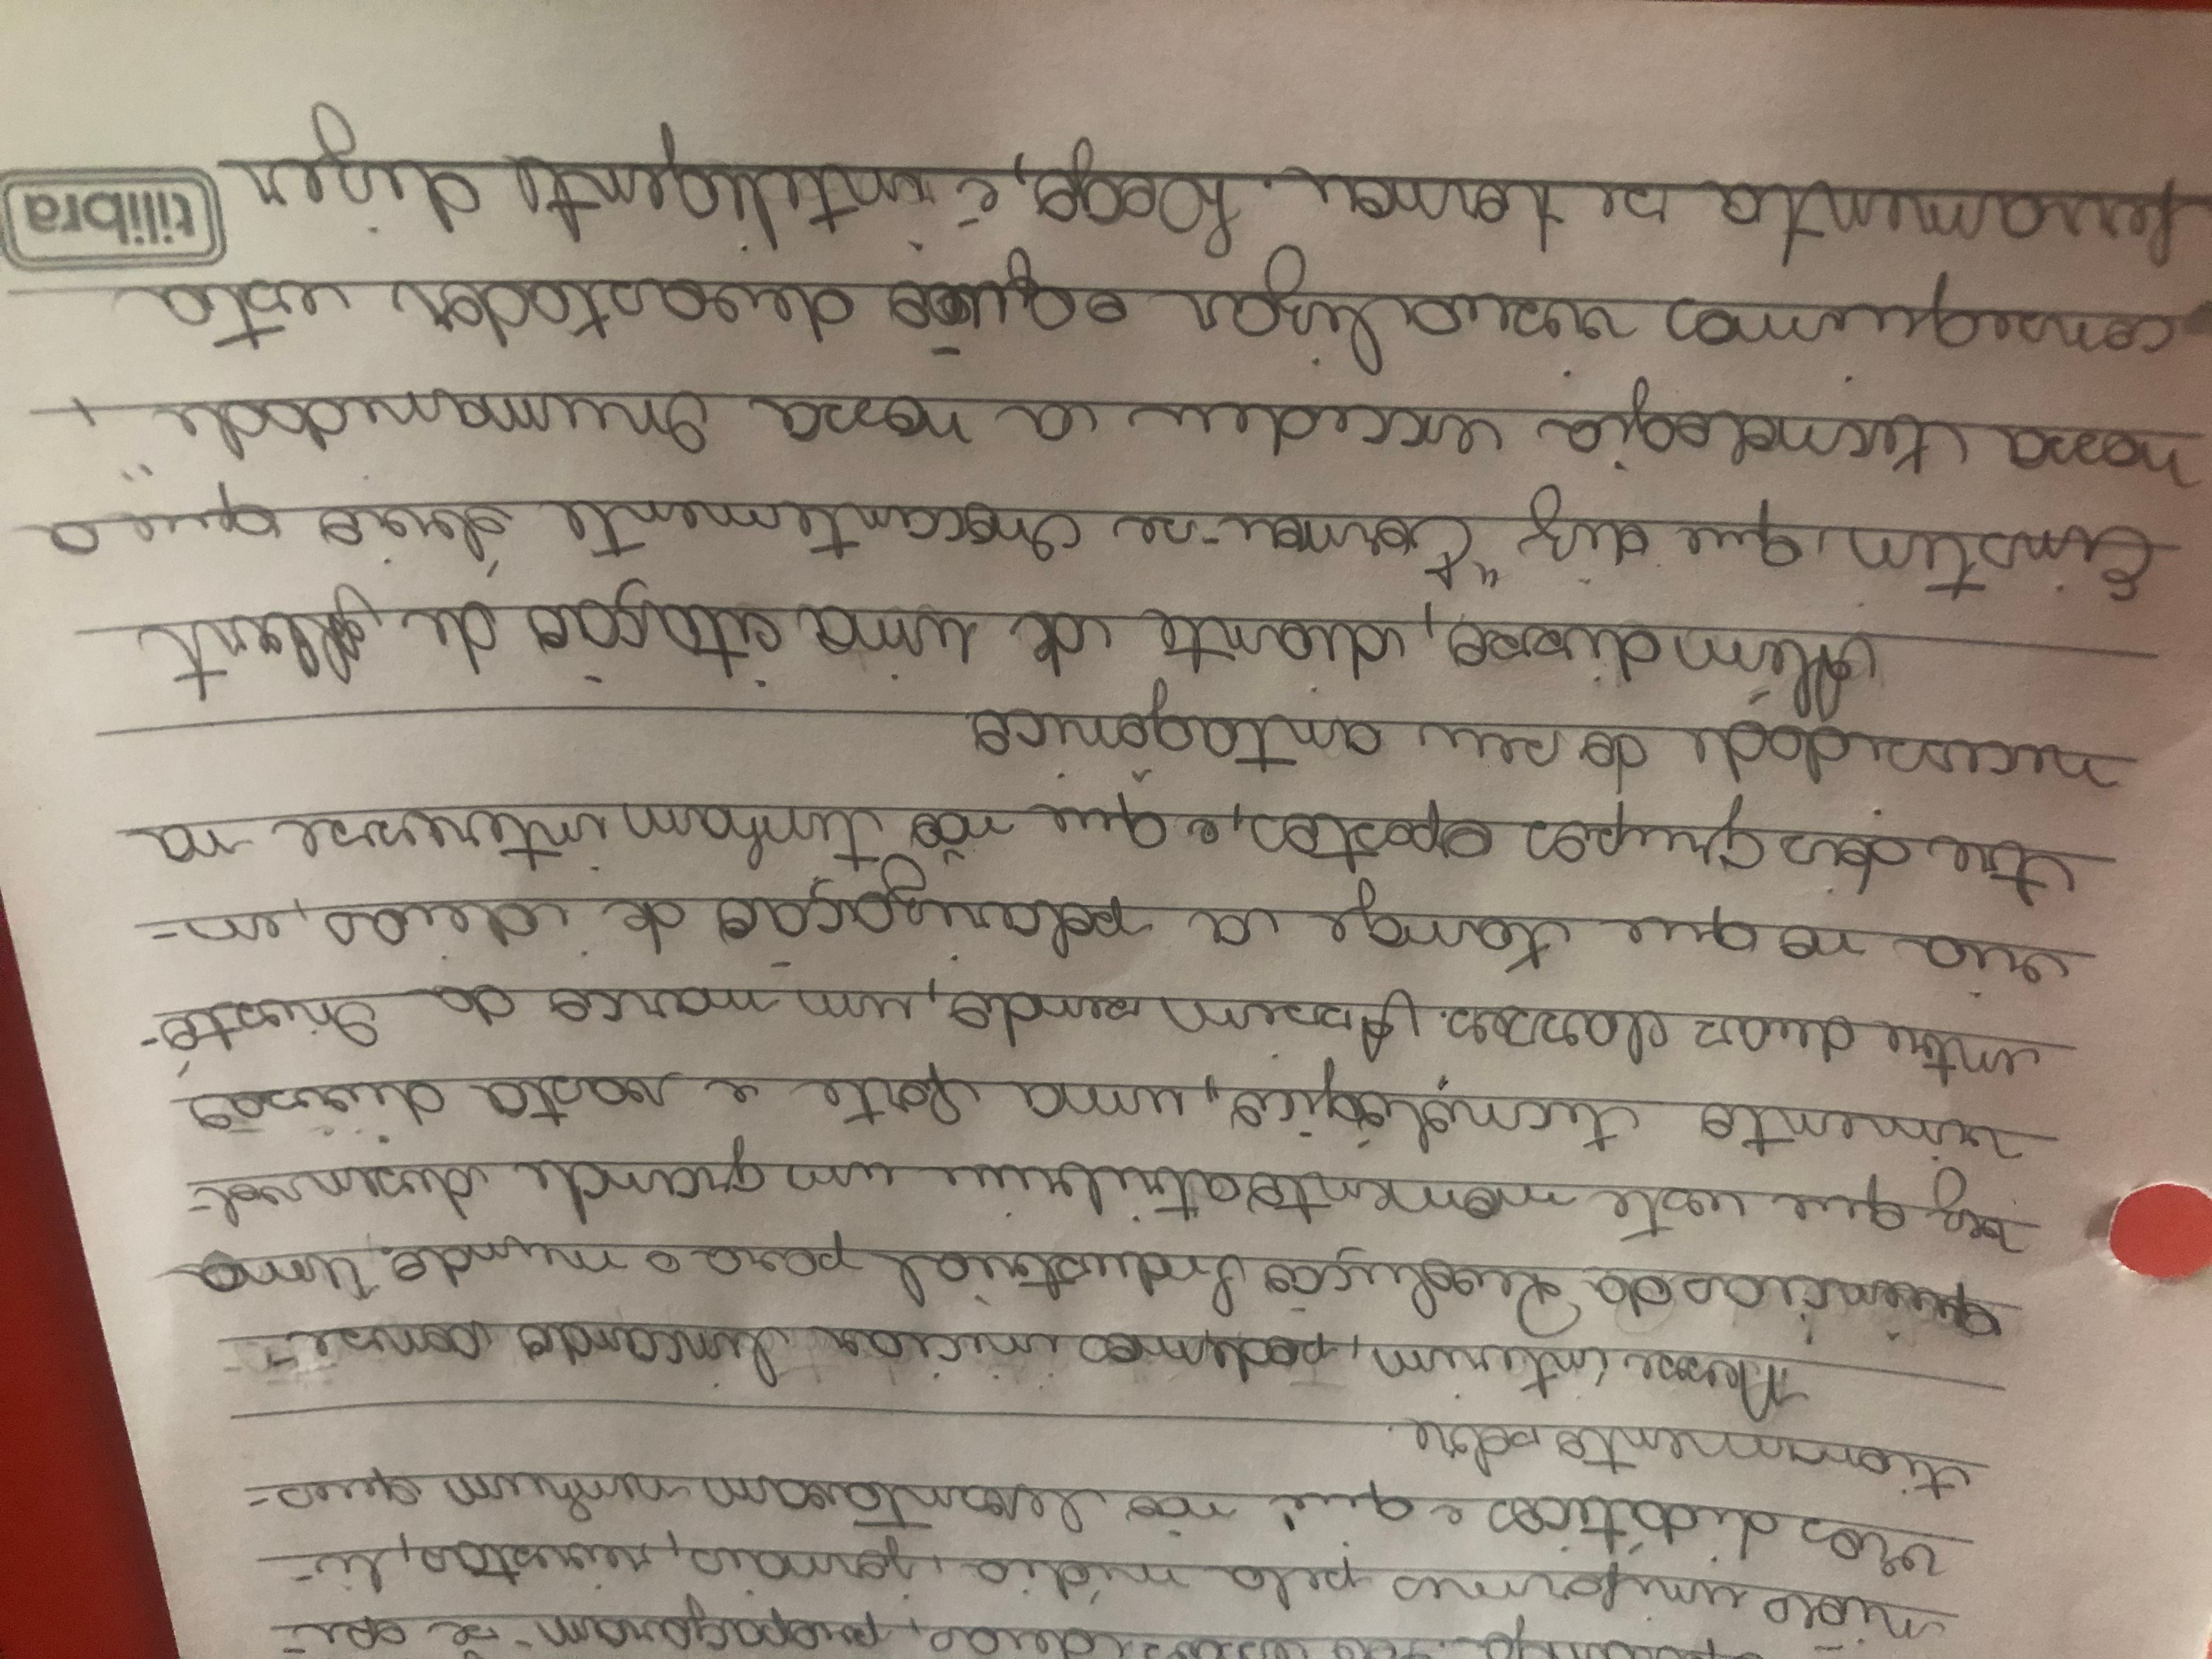 ideias, propagavam-se opi-
niões uniformes pela mídia, jornais, revistas, li-
vros didáticos e que não levantavam nenhum ques-
tionamento sobre.
Nesse ínterim, podemos iniciar lincando conse-
quências da Revolução Industrial para o mundo. Uma
vez que este momento atribuiu um grande desenvol-
vimento tecnológico, uma forte e vasta divisão
entre duas classes. Assim sendo, um marco da histó-
ria no que tange a polarização de ideias, en-
tre dois grupos opostos, e que não tinham interesse na
necessidade do seu antagônico
Além disso, diante de uma citação de Albert
Einstin, que diz "Tornou-se chocantemente óbvio que a
nossa tecnologia excedeu a nossa humanidade",
conseguimos visualizar o quão devastador esta
ferramenta se tornou. Logo, é inteligente dizer
tilibra